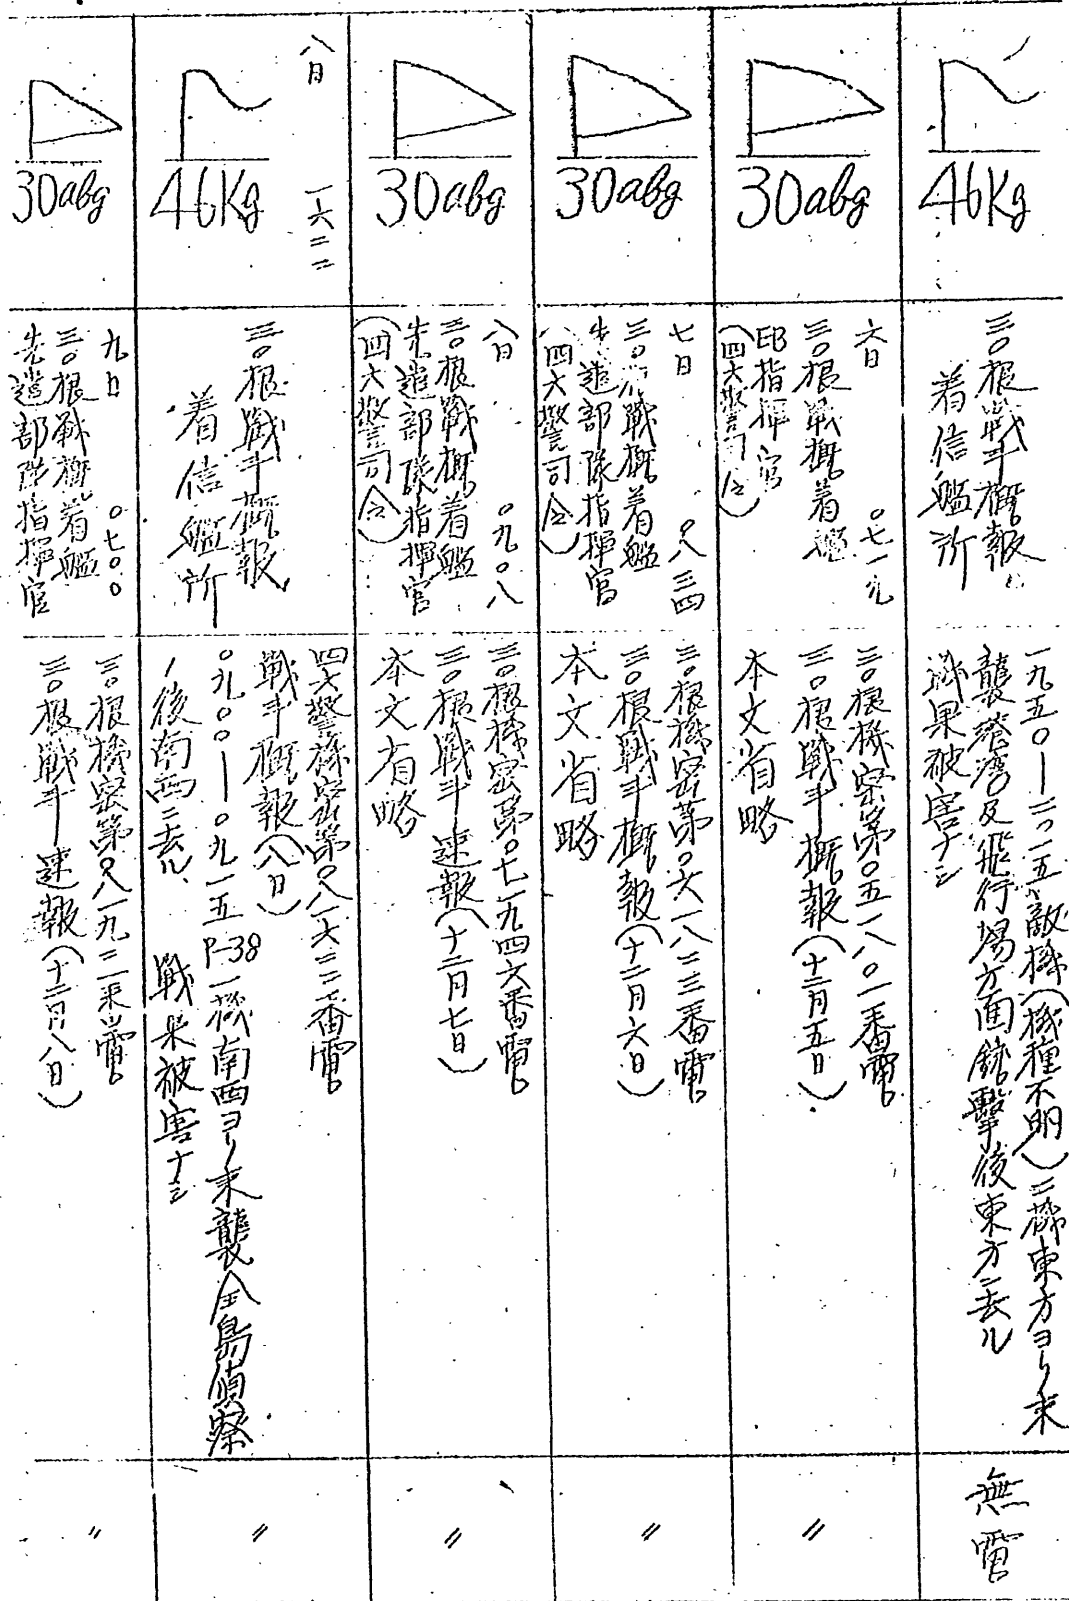 46Kg
三〇根戦斗概報
着信艦所
一九五〇―二〇一五敵機(機種不明)二機東方ヨリ来
襲港湾及飛行場方面銃撃後東方ニ去ル
被害ナシ
無電
30abg
六日 〇七一九
三〇根戦概着艦
EB指揮官
(四六警司令)
三〇根機密第〇五一八〇一番電
三〇根戦斗概報(十二月五日)
本文省略
〃
30abg
七日 〇八三四
三〇根戦概着艦
先遣部隊指揮官
(四六警司令)
三〇根機密第〇六一八二三番電
三〇根戦斗概報(十二月六日)
本文省略
〃
30abg
八日 〇九〇八
三〇根戦概着艦
先遣部隊指揮官
(四六警司令)
三〇根機密第〇七一九四六番電
三〇根戦斗速報(十二月七日)
本文省略
〃
八日 一六二二
46Kg
三〇根戦斗概報
着信艦所
四六警機密第〇八一六二二番電
戦斗概報(八日)
〇九〇〇―〇九一五P-38一機南西ヨリ来襲全島偵察
ノ後南西ニ去ル 戦果被害ナシ
〃
30abg
九日 〇七〇〇
三〇根戦概着艦
先遣部隊指揮官
三〇根機密第〇八一九二一番電
三〇根戦斗速報(十二月八日)
〃